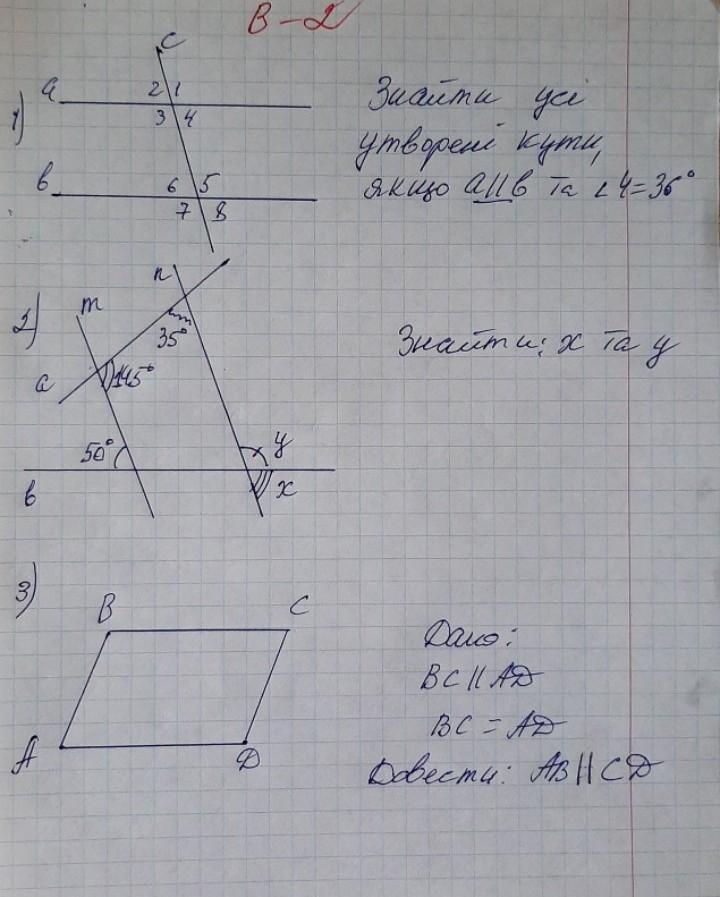 В-2
1)
c
a
2 1
3 4
в
6 5
7 8
Знайти усі
утворені кути,
якщо a||в та ∠4=36°
2)
n
m
35°
a
145°
50°
y
в
x
Знайти: x та y
3)
B C
A D
Дано:
BC||AD
BC = AD
Довести: AB||CD